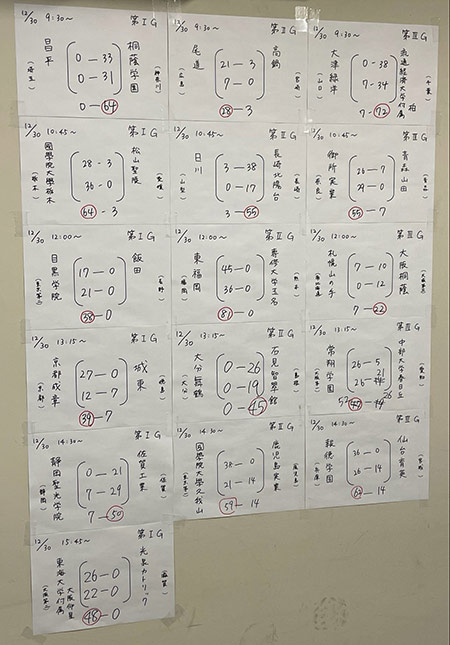 12/30 9:30~ 第ⅠG
昌平 (埼玉)
0-33
0-31
0-64
桐蔭学園 (神奈川)
12/30 9:30~ 第ⅡG
尾道 (広島)
21-3
7-0
28-3
高鍋 (宮崎)
12/30 9:30~ 第ⅢG
大津緑洋 (山口)
0-38
7-34
7-72
流通経済大学付属柏 (千葉)
12/30 10:45~ 第ⅠG
國學院大學栃木 (栃木)
28-3
36-0
64-3
松山聖陵 (愛媛)
12/30 10:45~ 第ⅡG
日川 (山梨)
3-38
0-17
3-55
長崎北陽台 (長崎)
12/30 10:45~ 第ⅢG
御所実業 (奈良)
26-7
29-0
55-7
青森山田 (青森)
12/30 12:00~ 第ⅠG
目黒学院
17-0
21-0
38-0
飯田 (長野)
12/30 12:00~ 第ⅡG
東福岡 (福岡)
45-0
36-0
81-0
専修大学玉名 (熊本)
12/30 12:00~ 第ⅢG
札幌山の手
7-10
0-12
7-22
大阪桐蔭
12/30 13:15~ 第ⅠG
京都成章 (京都)
27-0
12-7
39-7
城東 (徳島)
12/30 13:15~ 第ⅡG
大分舞鶴 (大分)
0-26
0-19
0-45
石見智翠館 (島根)
12/30 13:15~ 第ⅢG
常翔学園
26-5
26-21
52-26
中部大学春日丘 (愛知)
12/30 14:30~ 第ⅠG
静岡聖光学院 (静岡)
0-21
7-29
7-50
佐賀工業 (佐賀)
12/30 14:30~ 第ⅡG
國學院大學久我山
38-0
21-14
59-14
鹿児島実業 (鹿児島)
12/30 14:30~ 第ⅢG
報徳学園 (兵庫)
36-0
26-14
-14
仙台育英 (宮城)
12/30 15:45~ 第ⅠG
東海大学付属大阪仰星
26-0
22-0
48-0
光泉カトリック (滋賀)